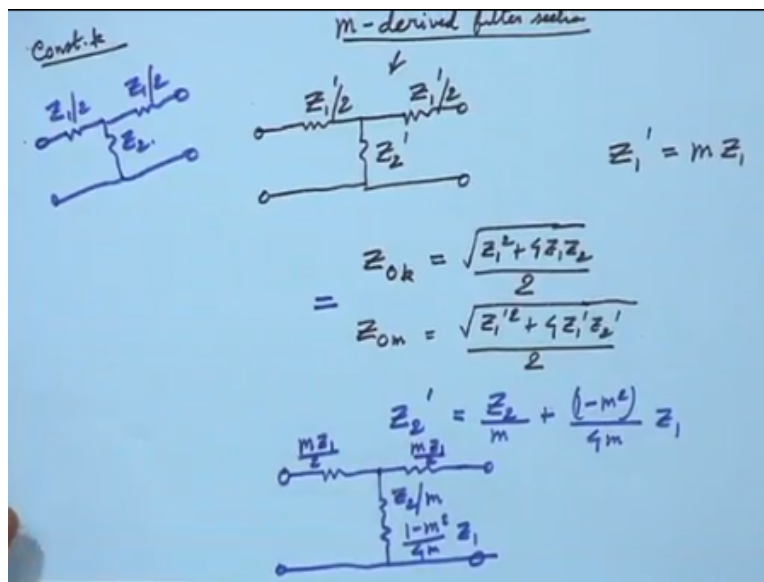 Const. k
m-derived filter section
Z₁/2 Z₁/2
Z₂
Z₁'/2 Z₁'/2
Z₂'
Z₁' = m Z₁
Z₀ₖ = √(Z₁² + 4Z₁Z₂) / 2
=
Z₀ₘ = √(Z₁'² + 4Z₁'Z₂') / 2
Z₂' = Z₂/m + (1-m²)/4m Z₁
mZ₁/2 mZ₁/2
Z₂/m
1-m²/4m Z₁